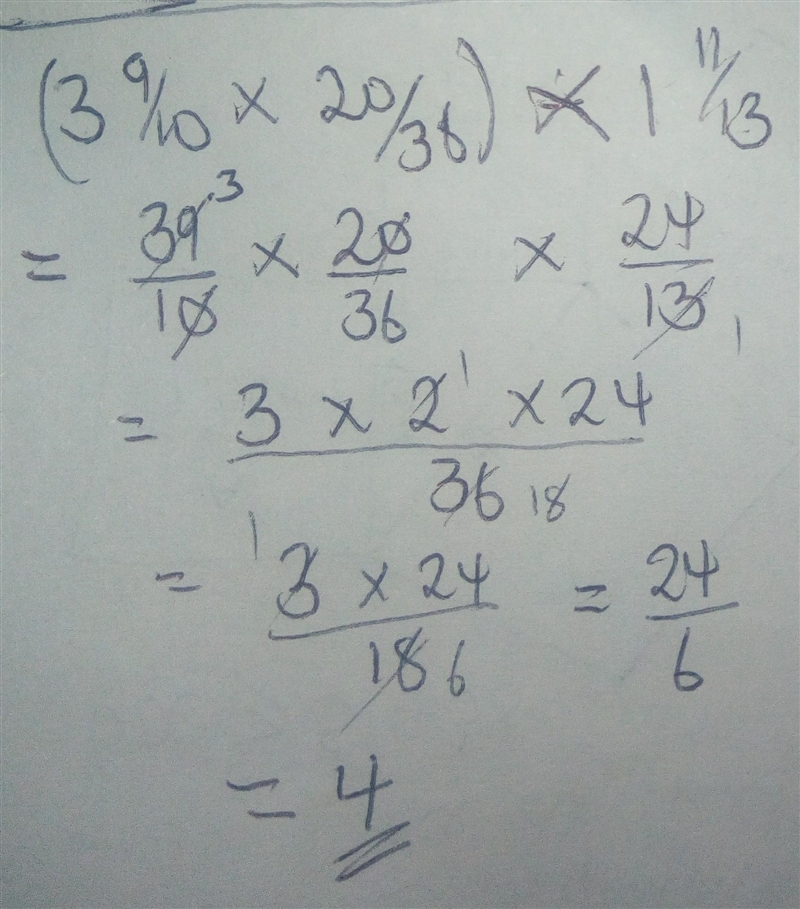 (3 9/10 × 20/36) × 1 11/13
= 39/10 3 × 20/36 × 24/13 1
= 3 × 2 1 × 24 / 36 18
= 1 3 × 24 / 18 6 = 24/6
= 4